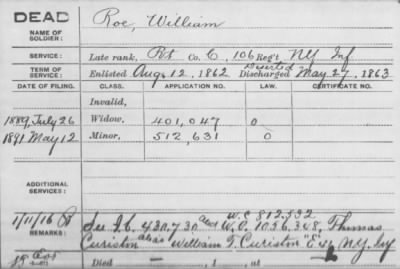 DEAD
NAME OF SOLDIER: Roe, William
SERVICE: Late rank, Pvt Co. C, 106 Reg't NY Inf
TERM OF SERVICE: Enlisted Aug. 12, 1862 Deserted Discharged May 27, 1863
DATE OF FILING. CLASS. APPLICATION NO. LAW. CERTIFICATE NO.
Invalid,
1889, July 26 Widow, 401,047 O
1891 May 12 Minor, 512,631 O
ADDITIONAL SERVICES:
W.C. 812,532
1/11/16 See I.C. 430,730 and W.O. 1036,308, Thomas
REMARKS: Curiston alias William T. Curiston "E" NY. Inf
Died — , 1 , at